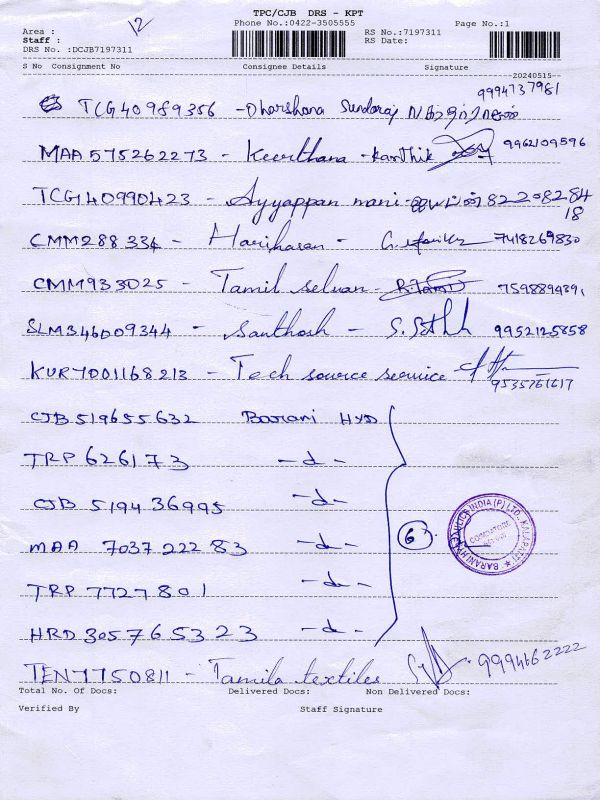 TPC/CJB DRS - KPT
Phone No.:0422-3505555
Page No.:1
Area :
12
RS No.:7197311
Staff :
RS Date:
DRS No. :DCJB7197311
S No Consignment No Consignee Details Signature
20240515
9994737981
TCG40989356 - Dharshana Sundaraj
MAA575262273 - Keerthana - Karthik 9962109596
TCG140990423 - Ayyappan mani - 8220828418
CMM288334 - Hariharan - 7418269830
CMM933025 - Tamil selvan -
SLM346009344 - Santhosh - 9952125858
KUR7001168213 - Tech source service 9535761617
CJB519655632 Barani HYD
TRP626173 -d-
CJB 519436995 -d-
MAA 703722283 -d-
6
TRP 7727801 -d-
HRD305765323 -d-
TEN7750811 - Tamila textiles 9994662222
Total No. Of Docs: Delivered Docs: Non Delivered Docs:
Verified By Staff Signature